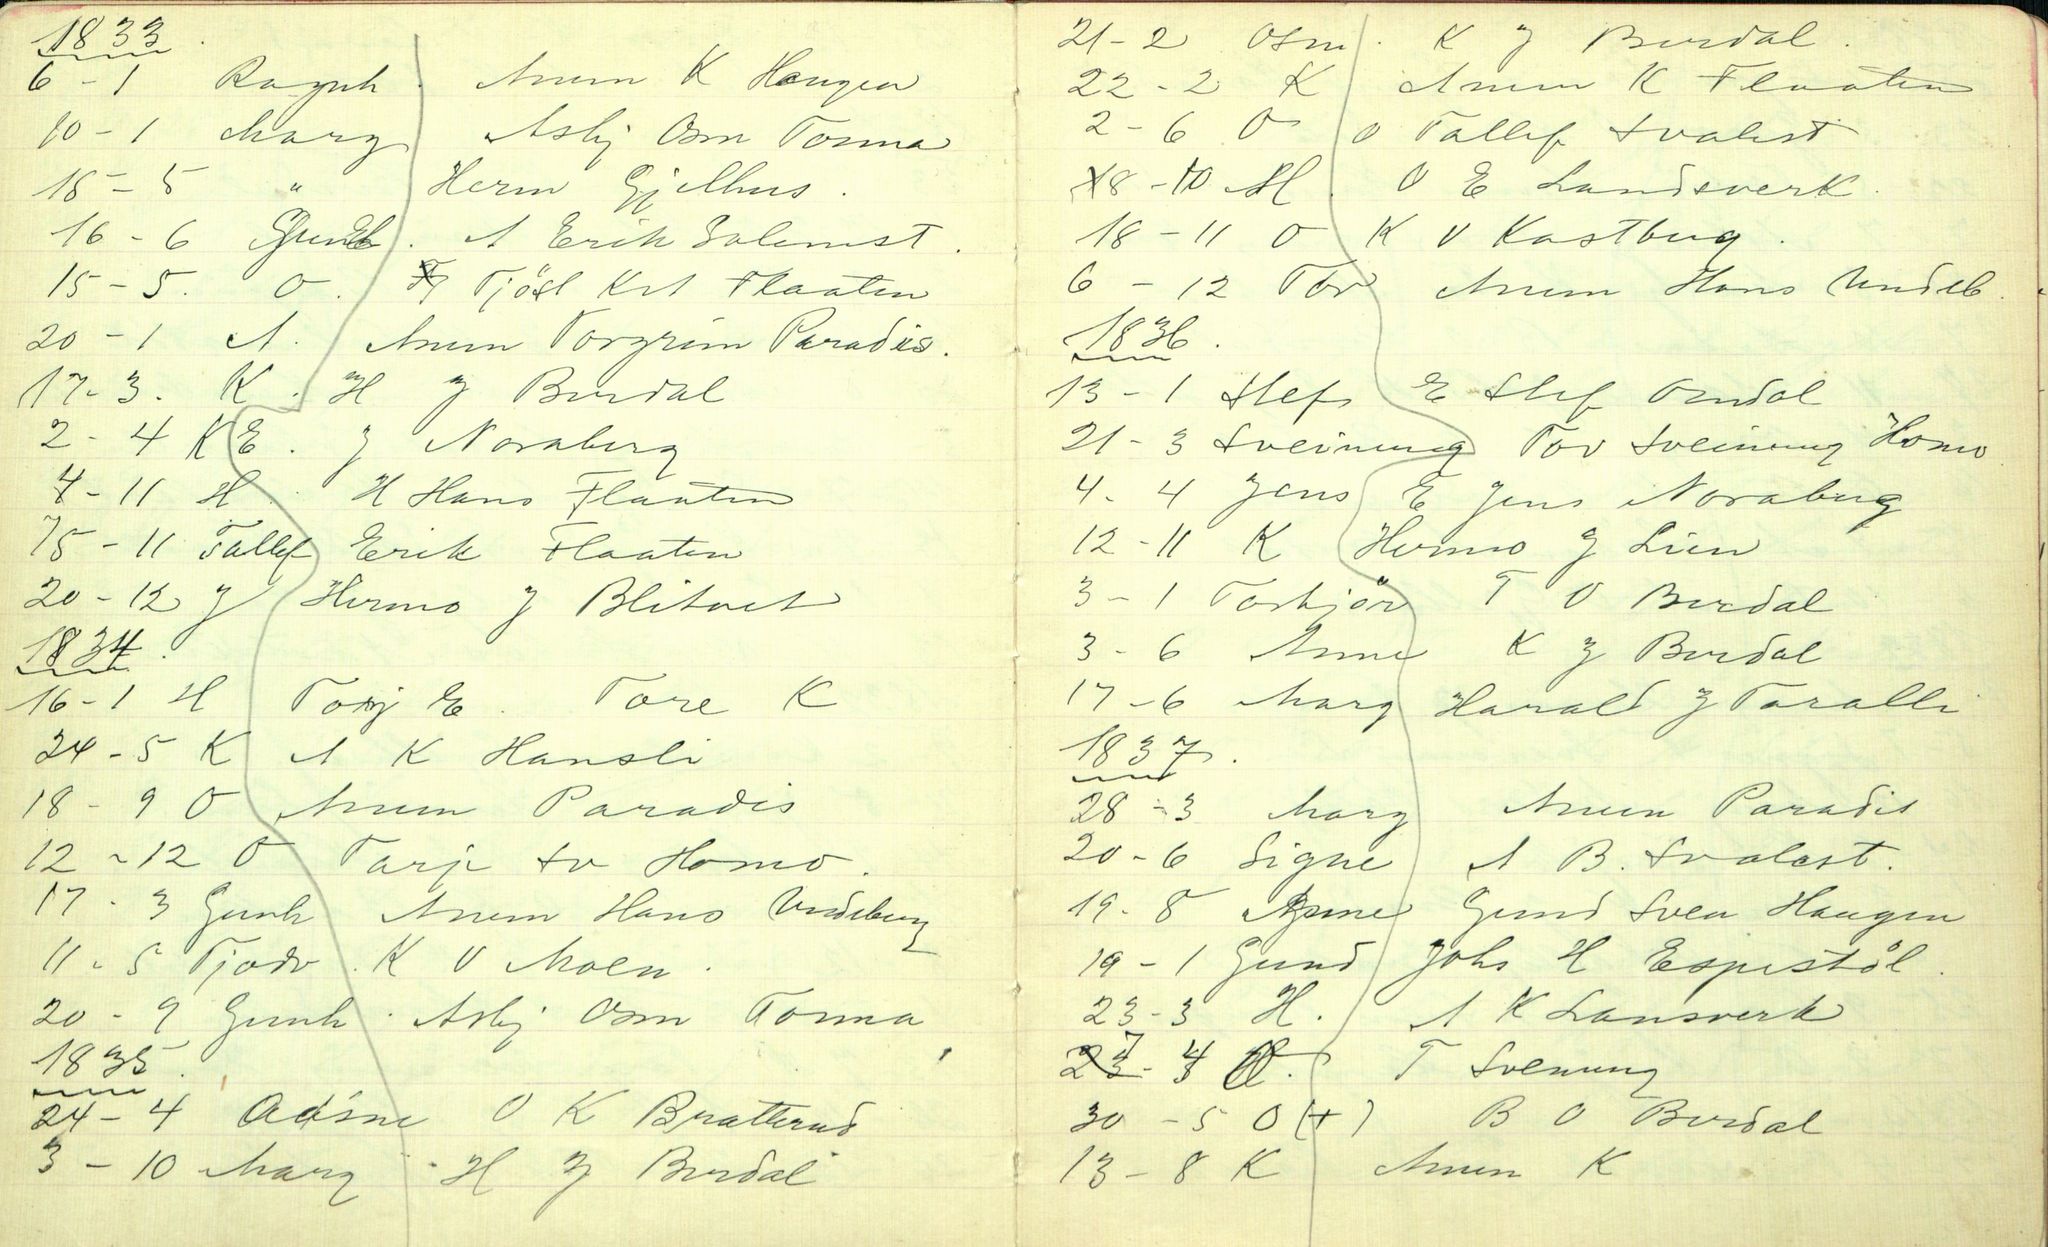 1833.
6 - 1 Ragnh. Anum K Haugen
10 - 1 Marg Asbj Osm Torma
18 - 5 " Herm Gjelhus.
16 - 6 Gunh. A Erik
15 - 5. O. Tjöst Krt Flaaten
20 - 1 A. Anum Torgrim Paradis.
17 - 3. K. H J Burdal
2 - 4 K E. J Noraberg
4 - 11 H. H Hans Flaaten
15 - 11 Tallef Erik Flaaten
20 - 12 J Hermo J Blitvet
1834.
16 - 1 H E. Tore K
24 - 5 K A K Hansli
18 - 9 O Anum Paradis
12 - 12 O Tarje Sv Homo.
17 - 3 Gunh Anum Hans Undeberg
11 - 5 Tjodv. K O Moen.
20 - 9 Gunh. Asbj Osm Torma
1835.
24 - 4 O K Bratterud
3 - 10 Marg. H J Burdal
21 - 2 Osm. K J Burdal.
22 - 2 K Anum K Flaaten
2 - 6 O O Tallef Svalest
18 - 10 H. O E Landsverk.
18 - 11 O K O Kostbug.
6 - 12 Tor Anum Hans Undeb.
1836.
13 - 1 Stef E Stef Omdal
21 - 3 Sveinung Tov Sveinung Homo
4 - 4 Jens E Jens Noraberg
12 - 11 K Hermo J Lien
3 - 1 Torbjör T O Burdal
3 - 6 Anne K J Burdal
17 - 6 Marg Harald J Taralli
1837.
28 - 3 Marg Anum Paradis
20 - 6 Signe A B. Svalest.
19 - 8 Anne Gund Sven Haugen
19 - 1 Gund Johs H Espestöl.
23 - 3 H. A K Lansverk
T Svenung
30 - 5 O (+) B O Burdal
13 - 8 K Anum K